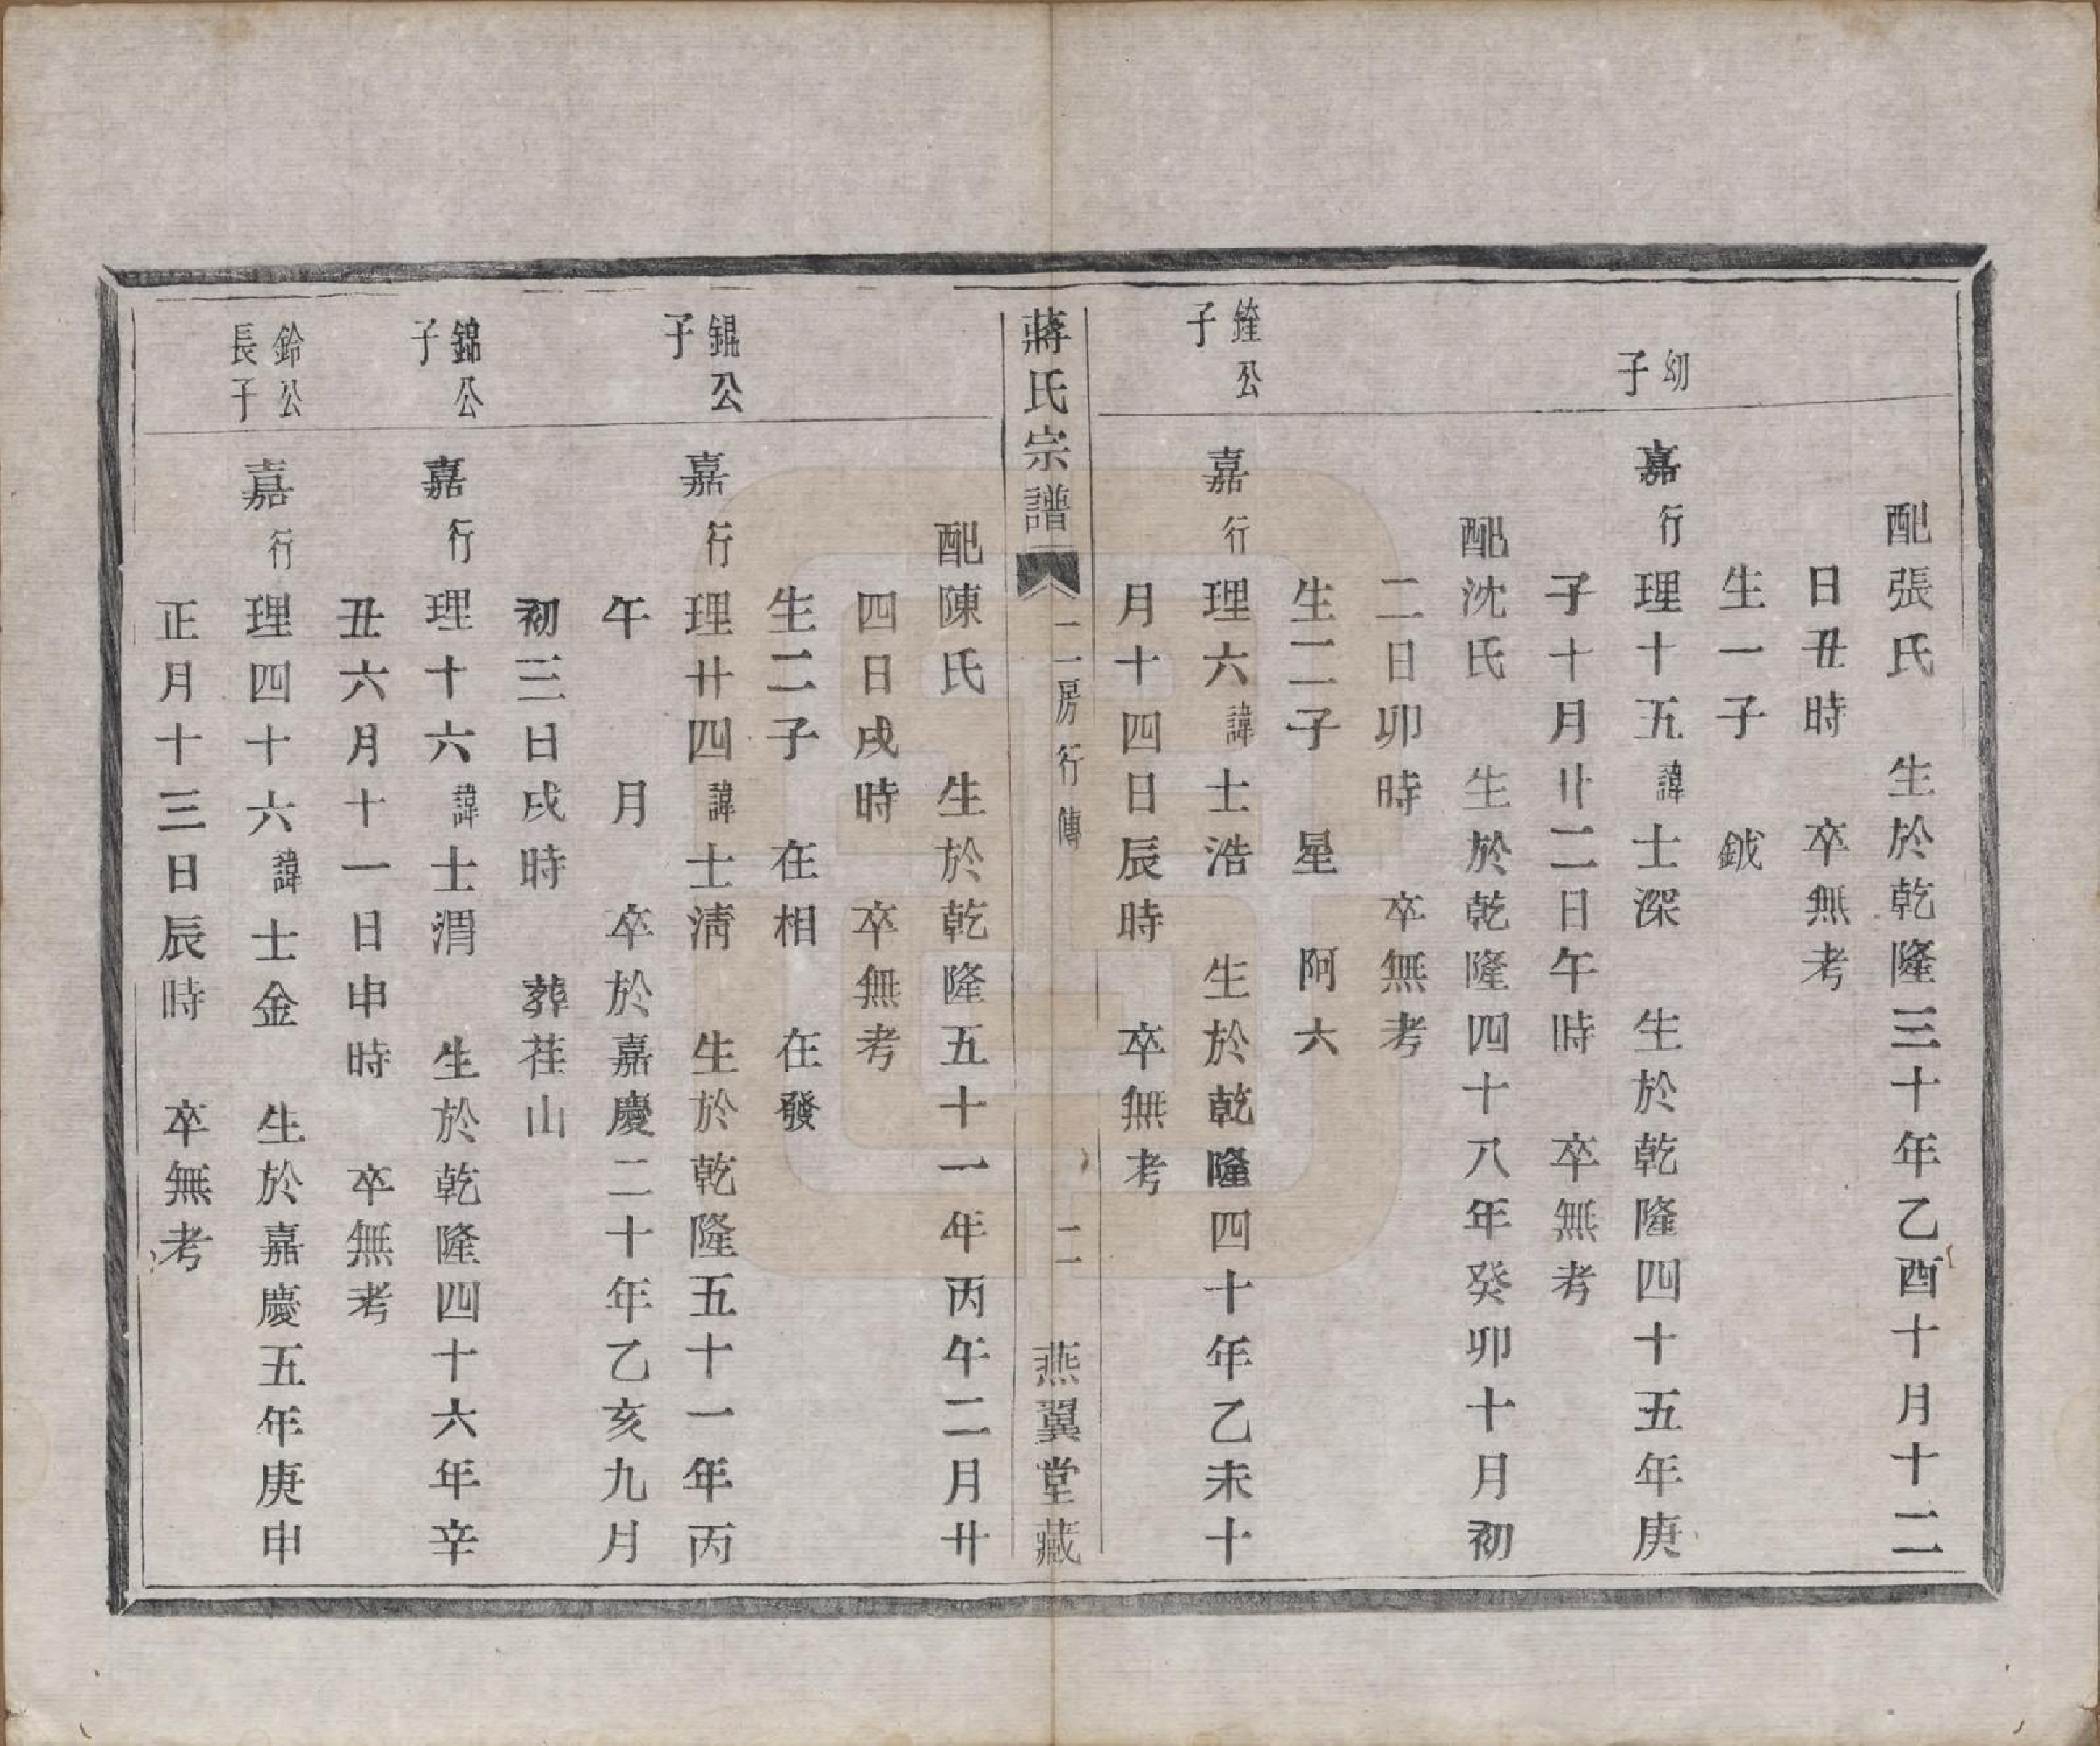 配張氏 生於乾隆三十年乙酉十月十二
日丑時 卒無考
生一子 鉞
幼子
嘉行理十五諱士深 生於乾隆四十五年庚
子十月廿二日午時 卒無考
配沈氏 生於乾隆四十八年癸卯十月初
二日卯時 卒無考
生二子 星 阿六
銓公子
嘉行理六諱士浩 生於乾隆四十年乙未十
月十四日辰時 卒無考
蔣氏宗譜 二房行傳 二 燕翼堂藏
配陳氏 生於乾隆五十一年丙午二月廿
四日戌時 卒無考
生二子 在相 在發
錕公子
嘉行理廿四諱士清 生於乾隆五十一年丙
午 月 卒於嘉慶二十年乙亥九月
初三日戌時 葬荏山
錦公子
嘉行理十六諱士渭 生於乾隆四十六年辛
丑六月十一日申時 卒無考
鈴公長子
嘉行理四十六諱士金 生於嘉慶五年庚申
正月十三日辰時 卒無考